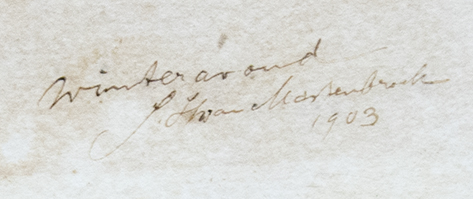 Winteravond
J. H van Mastenbroek
1903